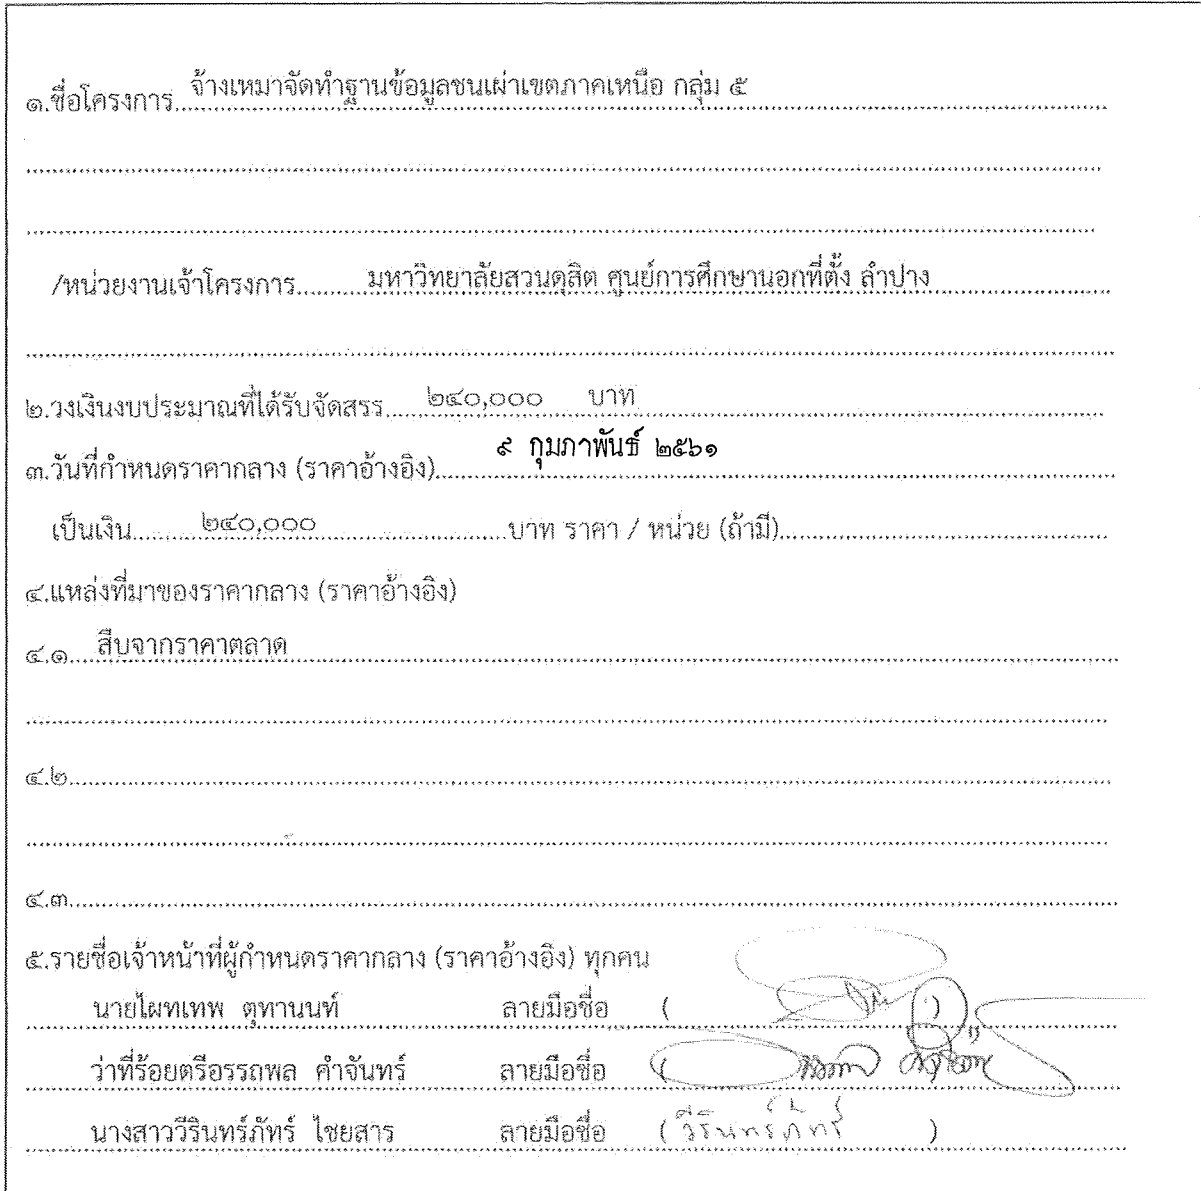 ๑.ชื่อโครงการ..จ้างเหมาจัดทำฐานข้อมูลชนเผ่าเขตภาคเหนือ กลุ่ม ๕
/หน่วยงานเจ้าโครงการ..........มหาวิทยาลัยสวนดุสิต ศูนย์การศึกษานอกที่ตั้ง ลำปาง
๒.วงเงินงบประมาณที่ได้รับจัดสรร......๒๔๐,๐๐๐ บาท
๓.วันที่กำหนดราคากลาง (ราคาอ้างอิง)........๙ กุมภาพันธ์ ๒๕๖๑
เป็นเงิน..........๒๔๐,๐๐๐..........บาท ราคา / หน่วย (ถ้ามี)..........
๔.แหล่งที่มาของราคากลาง (ราคาอ้างอิง)
๔.๑....สืบจากราคาตลาด
๔.๒..........
๔.๓..........
๕.รายชื่อเจ้าหน้าที่ผู้กำหนดราคากลาง (ราคาอ้างอิง) ทุกคน
นายไผทเทพ ตุทานนท์ ลายมือชื่อ ( )
ว่าที่ร้อยตรีอรรถพล คำจันทร์ ลายมือชื่อ (
นางสาววีรินทร์ภัทร์ ไชยสาร ลายมือชื่อ ( วีรินทร์ภัทร์ )